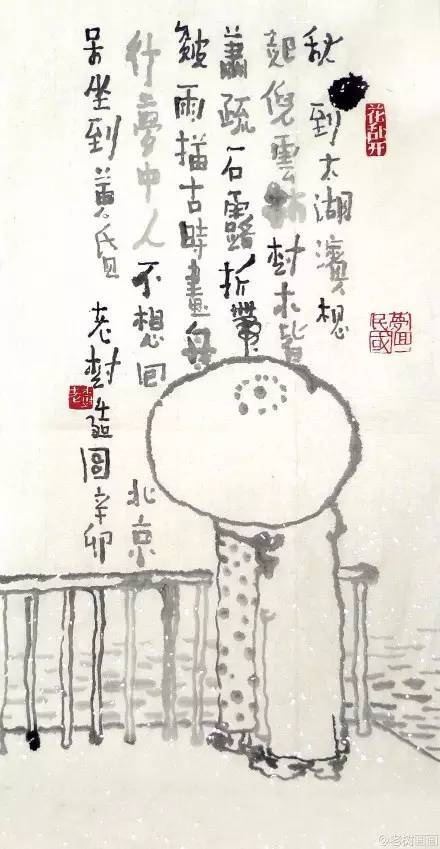 秋到太湖濱想
起倪雲林樹木皆
蕭疏石露折帶
皴雨描古時畫舟
行夢中人不想回北京
呆坐到黃昏 老樹並題圖辛卯
花乱开
夢回民國
@老树画画